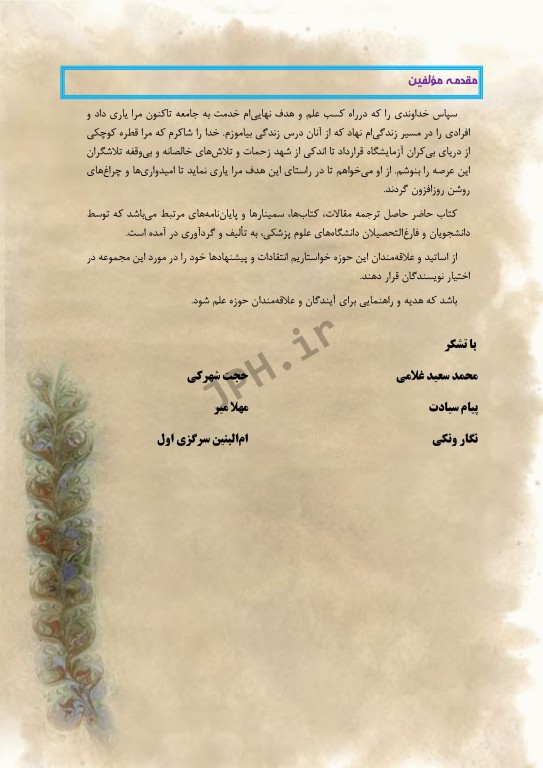 مقدمه مؤلفین
سپاس خداوندی را که درراه کسب علم و هدف نهایی‌ام خدمت به جامعه تاکنون مرا یاری داد و
افرادی را در مسیر زندگی‌ام نهاد که از آنان درس زندگی بیاموزم. خدا را شاکرم که مرا قطره کوچکی
از دریای بی‌کران آزمایشگاه قرارداد تا اندکی از شهد زحمات و تلاش‌های خالصانه و بی‌وقفه تلاشگران
این عرصه را بنوشم. از او می‌خواهم تا در راستای این هدف مرا یاری نماید تا امیدواری‌ها و چراغ‌های
روشن روزافزون گردند.
کتاب حاضر حاصل ترجمه مقالات، کتاب‌ها، سمینارها و پایان‌نامه‌های مرتبط می‌باشد که توسط
دانشجویان و فارغ‌التحصیلان دانشگاه‌های علوم پزشکی، به تألیف و گردآوری در آمده است.
از اساتید و علاقه‌مندان این حوزه خواستاریم انتقادات و پیشنهادها خود را در مورد این مجموعه در
اختیار نویسندگان قرار دهند.
باشد که هدیه و راهنمایی برای آیندگان و علاقه‌مندان حوزه علم شود.
با تشکر
محمد سعید غلامی حجت شهرکی
پیام سیادت مهلا میر
نگار ونکی ام‌البنین سرگزی اول
JPH.ir